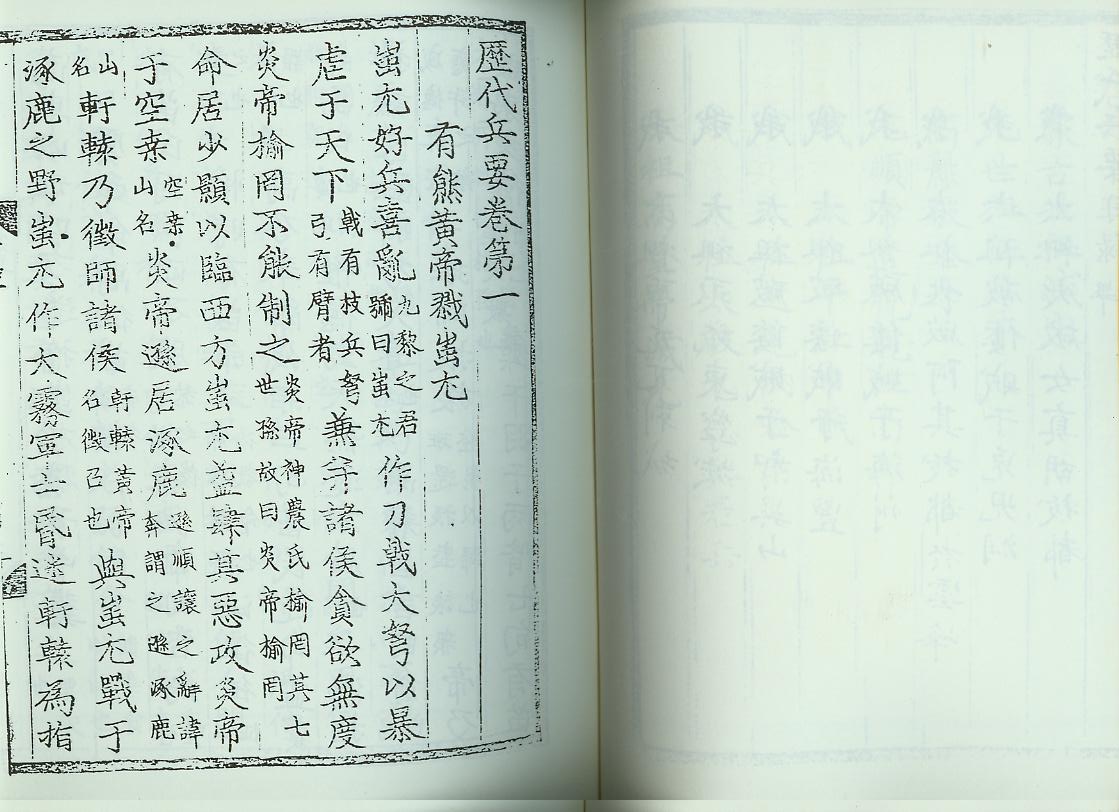 歷代兵要卷第一
有熊黃帝戮蚩尤
蚩尤好兵喜亂九黎之君號曰蚩尤作刀戟大弩以暴
虐于天下戟有枝兵弩弓有臂者兼并諸侯貪欲無度
炎帝榆罔不能制之炎帝神農氏榆罔其七世孫故曰炎帝榆罔
命居少顥以臨西方蚩尤益肆其惡攻炎帝
于空桒空桒山名炎帝遜居涿鹿遜順讓之辭諱奔謂之遜涿鹿
山名軒轅乃徵師諸侯軒轅黃帝名徵召也與蚩尤戰于
涿鹿之野蚩尤作大霧軍士昬迷軒轅為指